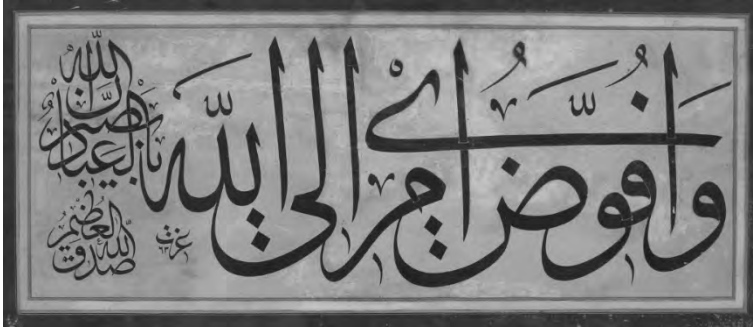 وَأُفَوِّضُ أَمْرِي إِلَى اللّٰهِ
إن اللّٰه بصير بالعباد
صدق اللّٰه العظيم
عزت